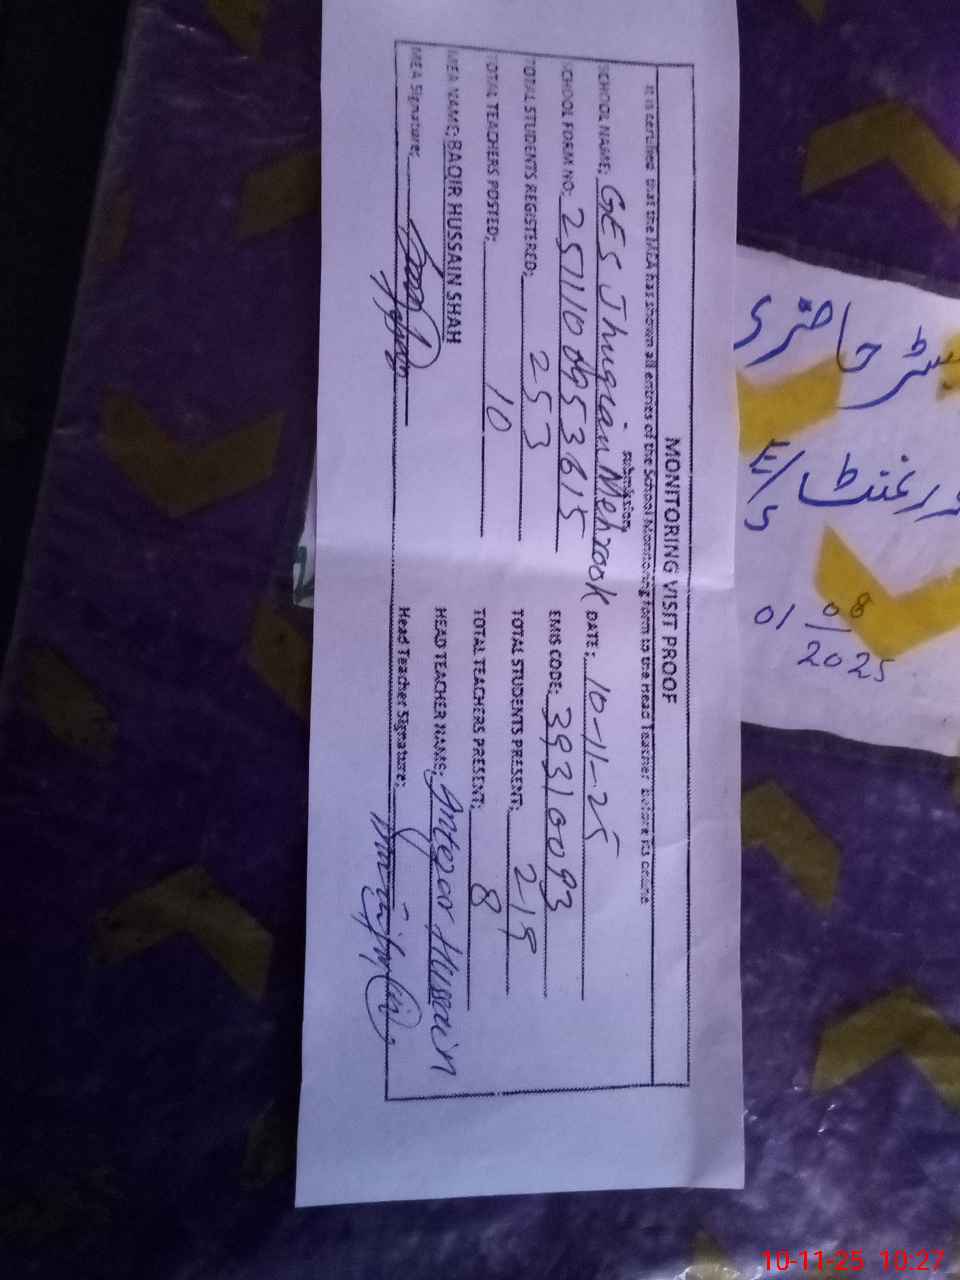 MONITORING VISIT PROOF
It is certified that the MEA has shown all entries of the School Monitoring form to the Head Teacher before its online
submission.
SCHOOL NAME: GES Jhugian Mehrook DATE: 10-11-25
SCHOOL FORM NO: EMIS CODE: 39310093
TOTAL STUDENTS REGISTERED: 253 TOTAL STUDENTS PRESENT: 219
TOTAL TEACHERS POSTED: 10 TOTAL TEACHERS PRESENT: 8
MEA NAME: BAQIR HUSSAIN SHAH HEAD TEACHER NAME: Intezar Hussain
MEA Signature: Head Teacher Signature:
حاضری
گورنمنٹ
01 08
2025
10-11-25 10:27